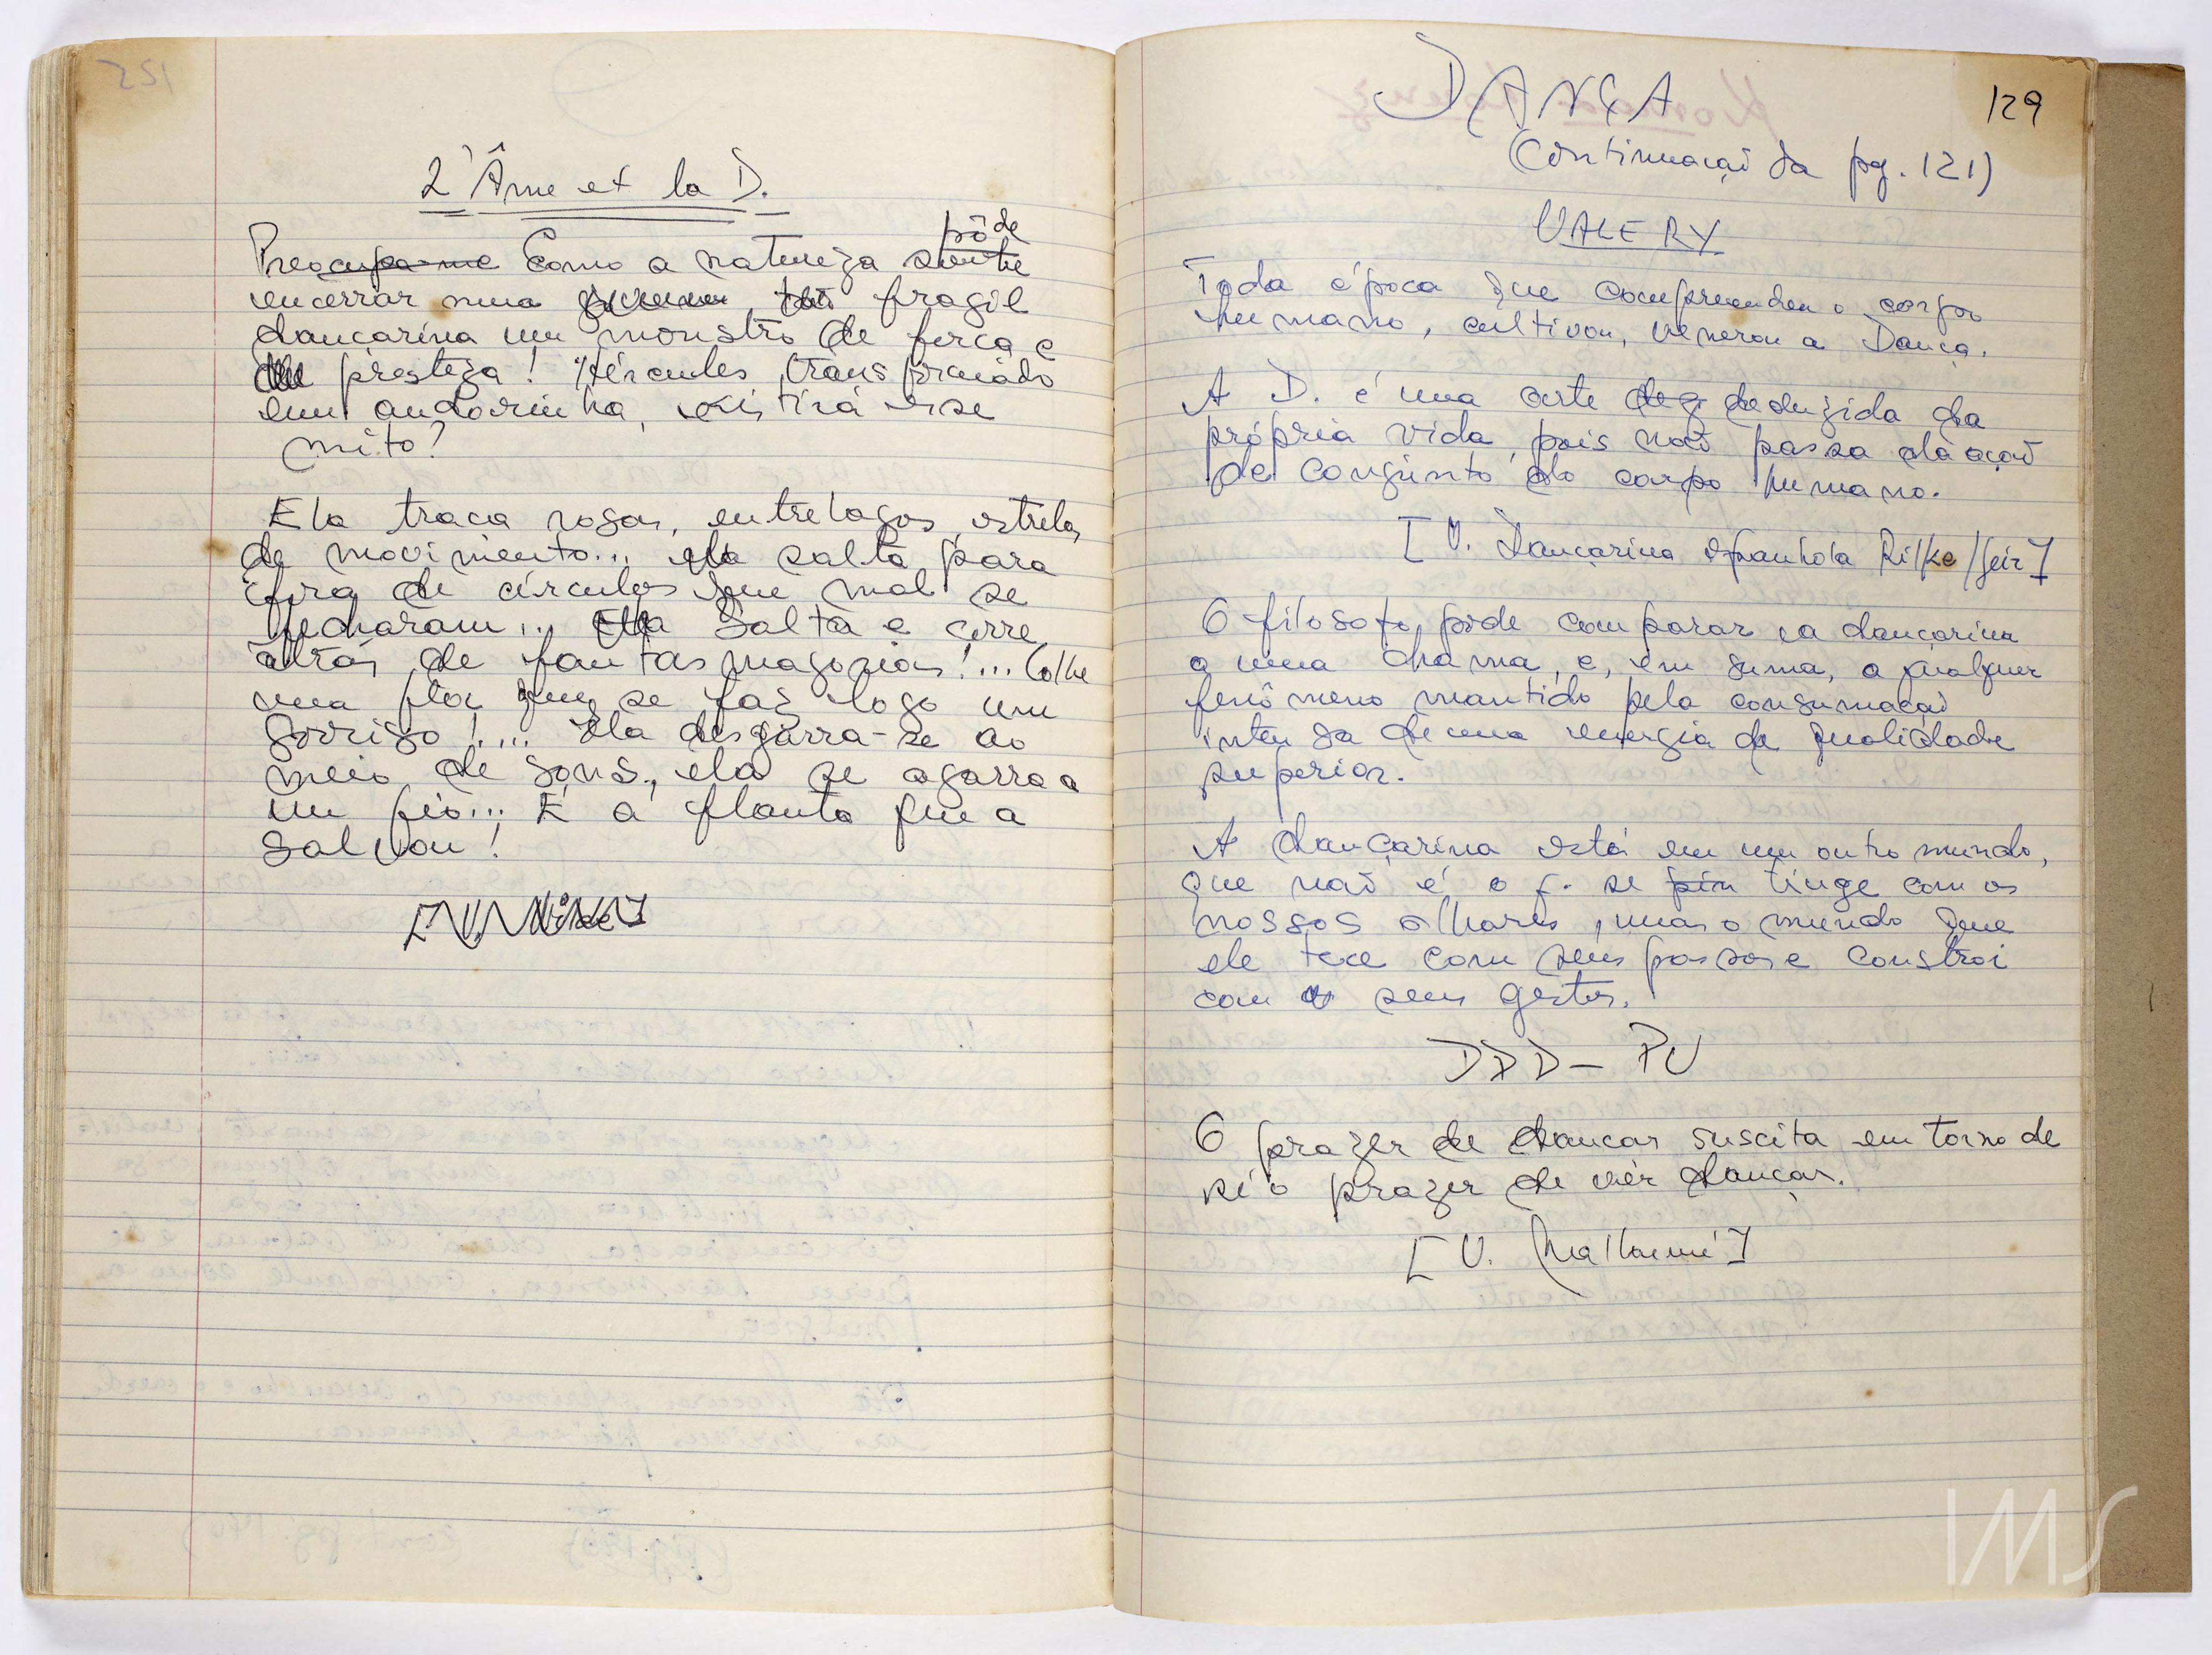 L'Âme et la D.
pôde
Preocupa-me Como a natureza soube
encerrar numa tão fragil
dançarina um monstro de força e
presteza! Hércules transformado
em andorinha, existirá esse
mito?
Ela traça rosas, entrelaços, estrelas
de movimento... ela salta para
fora de círculos que mal se
fecharam... Ela Salta e corre
atrás de fantasmagorias!... Colhe
uma flor que se faz logo um
sorriso!... Ela desgarra-se ao
meio de sons, ela se agarra a
um fio... É a flauta que a
salvou!
129
DANÇA
(Continuação da pg. 121)
VALERY
Toda época que compreendeu o corpo
humano, cultivou, venerou a Dança.
A D. é uma arte deduzida da
própria vida, pois não passa da ação
de conjunto do corpo humano.
[V. Dançarina espanhola Rilke/Geir]
O filosofo pode comparar a dançarina
a uma chama, e, em suma, a qualquer
fenômeno mantido pela consumação
intensa de uma energia de qualidade
superior.
A dançarina está em um outro mundo,
que não é o q. se pin tinge com os
nossos olhares, mas o mundo que
ele tece com seus passos e constroi
com os seus gestos.
DDD - PV
O prazer de dançar suscita em torno de
si o prazer de vêr dançar.
[V. Mallarmé]
IMS